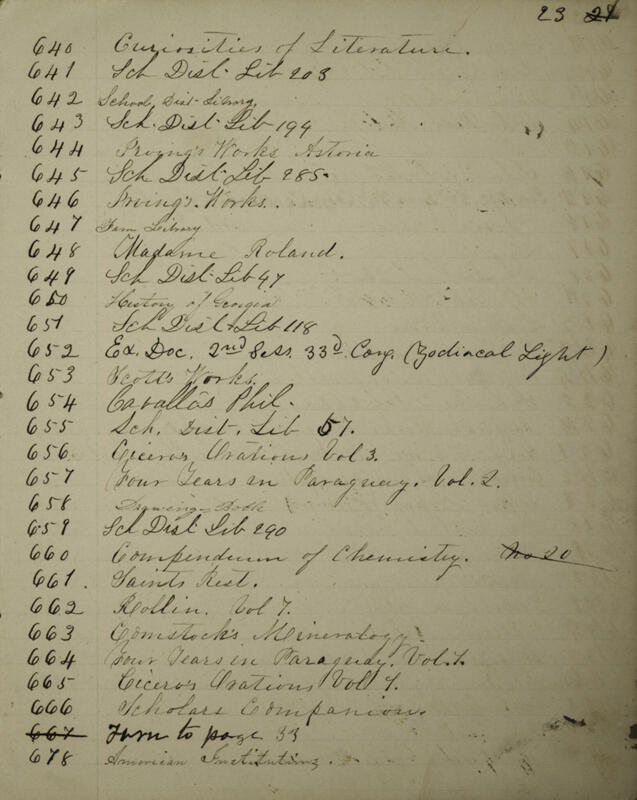 23 21
640 Curiosities of Literature.
641 Sch Dist Lib 203
642 School Dist Library,
643 Sch. Dist Lib 199
644 Irving's Works Astoria
645 Sch Dist Lib 285.
646 Irving's Works.
647 Fam Library
648 Madame Roland.
649 Sch Dist Lib 97
650 History of Georgia
651 Sch Dist Lib 118
652 Ex. Doc. 2nd Sess. 33d Cong. (Zodiacal Light)
653 Scott's Works.
654 Cavallo's Phil.
655 Sch. Dist. Lib 57.
656 Cicero's Orations Vol 3.
657 Four Years in Paraguay. Vol. 2.
658 Drawing-Book
659 Sch Dist Lib 290
660 Compendium of Chemistry. No 20
661. Saints Rest.
662 Rollin. Vol 7.
663 Comstock's Mineralogy
664 Four Years in Paraguay. Vol. 1.
665 Cicero's Orations Vol 1.
666 Scholars Companion.
667 Turn to page 33
678 American Institutions.